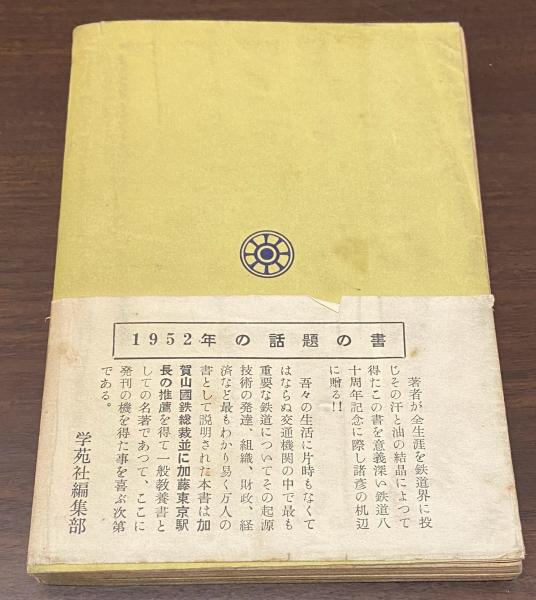 1952年の話題の書
著者が全生涯を鉄道界に投
じその汗と油の結晶によつて
得たこの書を意義深い鉄道八
十周年記念に際し諸彦の机辺
に贈る!!
吾々の生活に片時もなくて
はならぬ交通機関の中で最も
重要な鉄道についてその起源
技術の発達、組織、財政、経
済など最もわかり易く万人の
書として説明された本書は加
賀山國鉄総裁並に加藤東京駅
長の推薦を得て一般教養書と
しての名著であつて、ここに
発刊の機を得た事を喜ぶ次第
である。
学苑社編集部